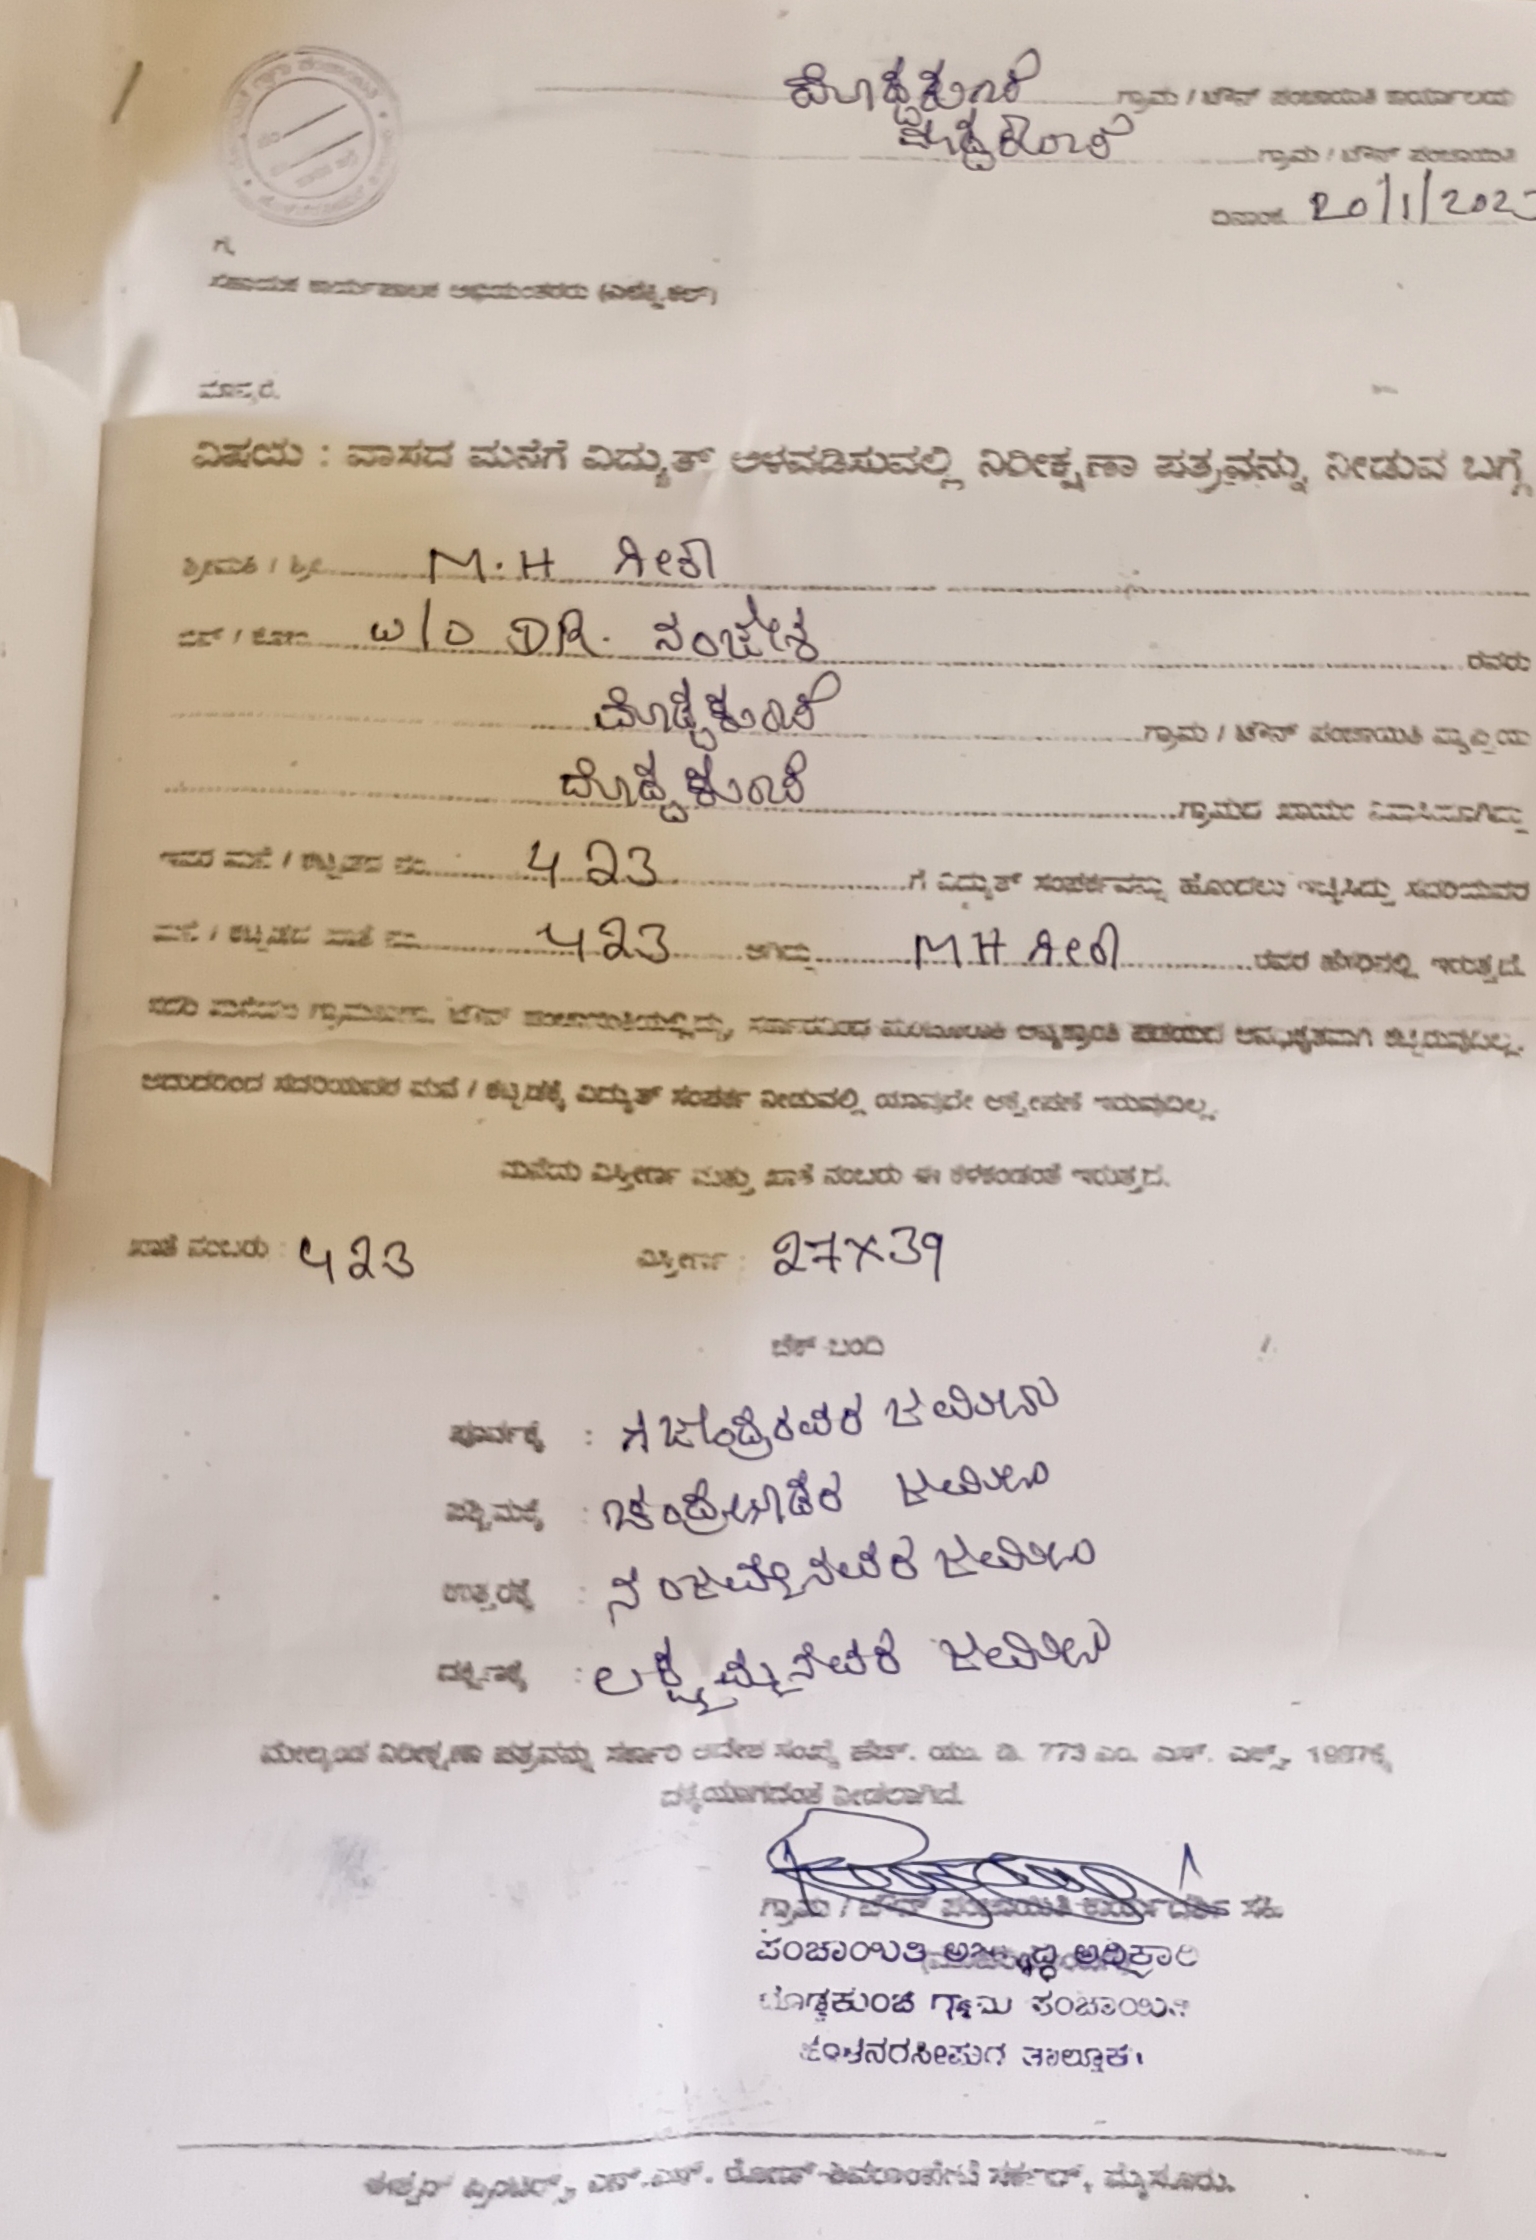 ದೊಡ್ಡಕುಂಚೆ ಗ್ರಾಮ / ಟೌನ್ ಪಂಚಾಯಿತಿ ಕಾರ್ಯಾಲಯ
ದೊಡ್ಡಕುಂಚೆ ಗ್ರಾಮ / ಟೌನ್ ಪಂಚಾಯಿತಿ
ದಿನಾಂಕ 20/1/202
ಗೆ,
ಸಹಾಯಕ ಕಾರ್ಯಪಾಲಕ ಅಭಿಯಂತರರು (ಎಲೆಕ್ಟ್ರಿಕಲ್)
ಮಾನ್ಯರೆ,
ವಿಷಯ : ವಾಸದ ಮನೆಗೆ ವಿದ್ಯುತ್ ಅಳವಡಿಸುವಲ್ಲಿ ನಿರೀಕ್ಷಣಾ ಪತ್ರವನ್ನು ನೀಡುವ ಬಗ್ಗೆ
ಶ್ರೀಮತಿ / ಶ್ರೀ M.H ಗೀತಾ
ಬಿನ್ / ಕೋಂ w/o DR. ನಂಜೇಶ ರವರು
ದೊಡ್ಡಕುಂಚೆ ಗ್ರಾಮ / ಟೌನ್ ಪಂಚಾಯಿತಿ ವ್ಯಾಪ್ತಿಯ
ದೊಡ್ಡಕುಂಚೆ ಗ್ರಾಮದ ಖಾಯಂ ನಿವಾಸಿಯಾಗಿದ್ದು
ಇವರ ಮನೆ / ಕಟ್ಟಡದ ನಂ. 423 ಗೆ ವಿದ್ಯುತ್ ಸಂಪರ್ಕವನ್ನು ಹೊಂದಲು ಇಚ್ಛಿಸಿದ್ದು ಸದರಿಯವರ
ಮನೆ / ಕಟ್ಟಡದ ಖಾತೆ ನಂ. 423 ಆಗಿದ್ದು MH ಗೀತಾ ರವರ ಹೆಸರಿನಲ್ಲಿ ಇರುತ್ತದೆ.
ಸದರಿ ಮನೆಯು ಗ್ರಾಮಠಾಣಾ ಟೌನ್ ಪಂಚಾಯಿತಿಯಲ್ಲಿದ್ದು, ಸರ್ಕಾರದಿಂದ ಪಡೆಯದೆ ಅನಧಿಕೃತವಾಗಿ ಕಟ್ಟಿರುವುದಿಲ್ಲ.
ಆದುದರಿಂದ ಸದರಿಯವರ ಮನೆ / ಕಟ್ಟಡಕ್ಕೆ ವಿದ್ಯುತ್ ಸಂಪರ್ಕ ನೀಡುವಲ್ಲಿ ಯಾವುದೇ ಆಕ್ಷೇಪಣೆ ಇರುವುದಿಲ್ಲ.
ಮನೆಯ ವಿಸ್ತೀರ್ಣ ಮತ್ತು ಖಾತೆ ನಂಬರು ಈ ಕೆಳಕಂಡಂತೆ ಇರುತ್ತದೆ.
ಖಾತೆ ನಂಬರು : 423 ವಿಸ್ತೀರ್ಣ : 27×39
ಚೆಕ್ ಬಂದಿ
ಪೂರ್ವಕ್ಕೆ : ಜಮೀನು
ಪಶ್ಚಿಮಕ್ಕೆ : ಜಮೀನು
ಉತ್ತರಕ್ಕೆ : ಜಮೀನು
ದಕ್ಷಿಣಕ್ಕೆ : ಜಮೀನು
ಮೇಲ್ಕಂಡ ನಿರೀಕ್ಷಣಾ ಪತ್ರವನ್ನು ಸರ್ಕಾರಿ ಆದೇಶ ಸಂಖ್ಯೆ ಹೆಚ್. ಯು. ಡಿ. 773 ಎಂ. ಎನ್. ಎಕ್ಸ್. 1997ಕ್ಕೆ
ದಕ್ಕೆಯಾಗದಂತೆ ನೀಡಲಾಗಿದೆ.
ಗ್ರಾಮ / ಟೌನ್ ಪಂಚಾಯಿತಿ ಕಾರ್ಯದರ್ಶಿ ಸಹಿ
ಪಂಚಾಯಿತಿ ಅಭಿವೃದ್ಧಿ ಅಧಿಕಾರಿ
ದೊಡ್ಡಕುಂಚೆ ಗ್ರಾಮ ಪಂಚಾಯಿತಿ
ತಾಲ್ಲೂಕು
ಪ್ರಿಂಟರ್ಸ್, ಎನ್.ಎಸ್. ರೋಡ್ ಸರ್ಕಲ್, ಮೈಸೂರು.